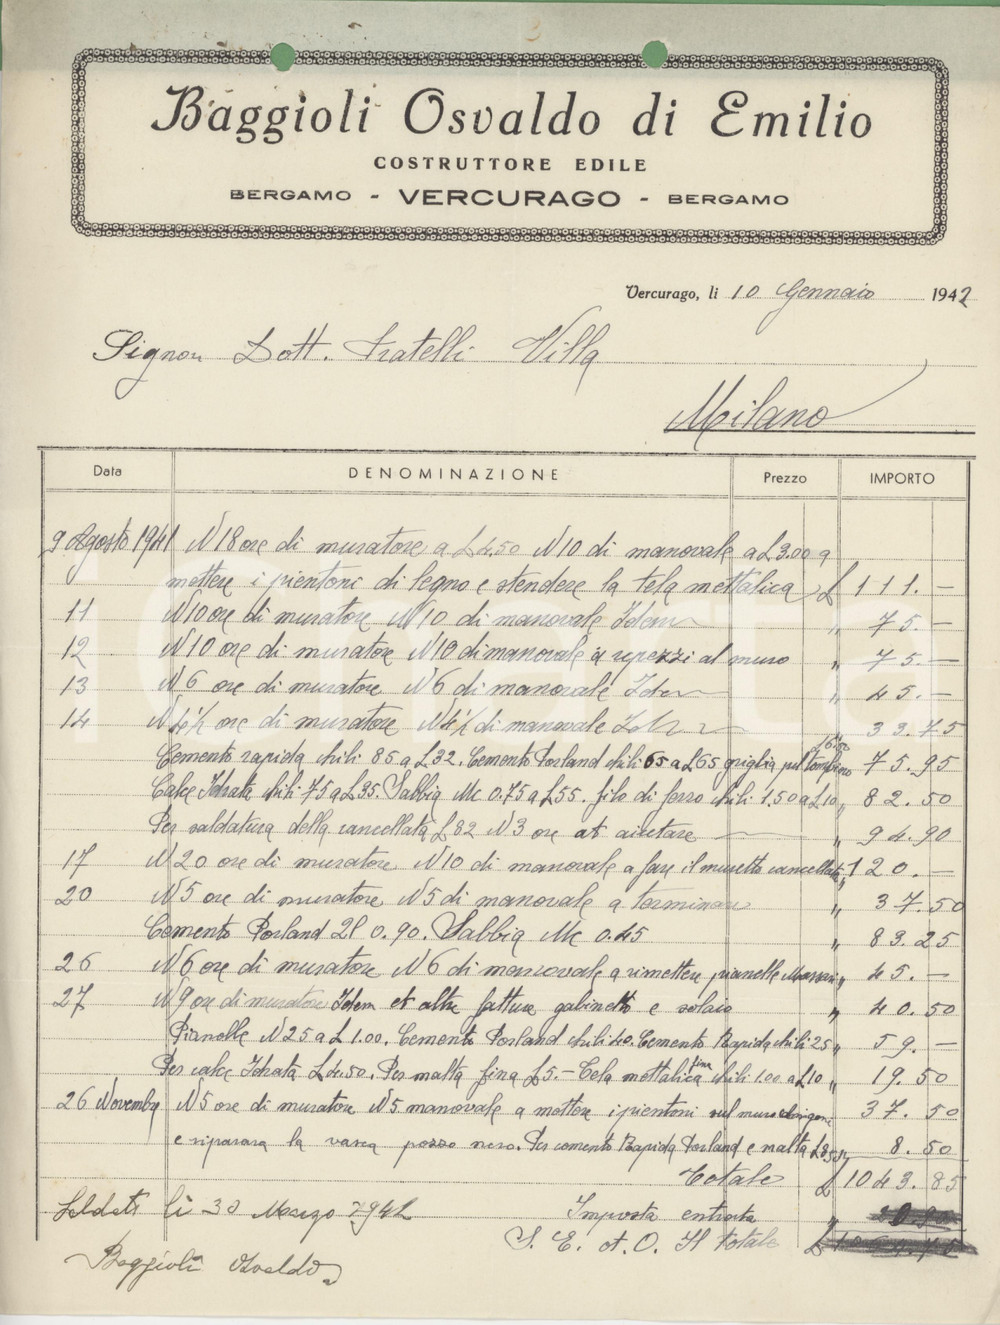 Baggioli Osvaldo di Emilio
COSTRUTTORE EDILE
BERGAMO - VERCURAGO - BERGAMO
Vercurago, li 10 Gennaio 1942
Signori Dott. Fratelli Villa
Milano
Data DENOMINAZIONE Prezzo IMPORTO
9 Agosto 1941 N 18 ore di muratore a L 4.50 N 10 di manovale a L 3.00 a
mettere i pientoni di legno e stendere la tela mettalica L 111.—
11 N 10 ore di muratore N 10 di manovale Idem " 75.—
12 N 10 ore di muratore N 10 di manovale a repezzi al muro " 75.—
13 N 6 ore di muratore N 6 di manovale Idem " 45.—
14 N 4½ ore di muratore N 4½ di manovale Idem " 33.75
16.50
Cemento rapida chili 85 a L 32. Cemento Porland chili 65 a L 65 griglia pel tombino 75.95
Calce Idrata chili 75 a L 35. Sabbia Mc 0.75 a L 55. filo di ferro chili 1.50 a L 10 " 82.50
Per saldatura della cancellata L 82 N 3 ore at aiutare " 94.90
17 N 20 ore di muratore N 10 di manovale a fare il muretto cancellata " 120.—
20 N 5 ore di muratore N 5 di manovale a terminare " 37.50
Cemento Porland 2l 0.90. Sabbia Mc 0.45 " 83.25
26 N 6 ore di muratore N 6 di manovale a rimettere pianelle " 45.—
27 N 9 ore di muratore Idem et altre fatture gabinetti e solaio " 40.50
Pianelle N 25 a L 1.00. Cemento Porland chili 40. Cemento Rapida chili 25 " 59.—
Per calce Idrata L 4.50. Per malta fina L 5.— Tela mettalica fina chili 1.00 a L 10 " 19.50
26 Novembre N 5 ore di muratore N 5 manovale a mettere i pientoni sul muro 37.50
e riparara la vasca pozzo nero. Per cemento Rapida Porland e malta L 8.50 " 8.50
Totale L 1043.85
Saldato li 30 Marzo 1942 Imposta entrata "
S. E. et. O. Il totale L
Baggioli Osvaldo